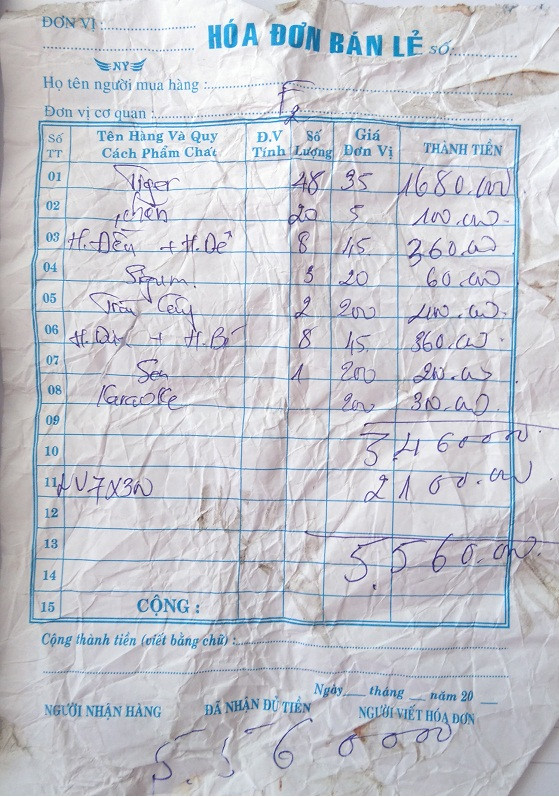 ĐƠN VỊ :
HÓA ĐƠN BÁN LẺ SỐ:
NY
Họ tên người mua hàng :
Đơn vị cơ quan : F2
Số TT Tên Hàng Và Quy Cách Phẩm Chất Đ.V Tính Số Lượng Giá Đơn Vị THÀNH TIỀN
01 Tiger 48 35 1680.000
02 20 5 100.000
03 8 45 360.000
04 3 20 60.000
05 2 200 400.000
06 8 45 360.000
07 Sen 1 200 200.000
08 Karaoke 300.000
09
10 3.460000
11 NV7x300 2100.000
12
13 5.560.000
14
15 CỘNG :
Cộng thành tiền (viết bằng chữ) :
Ngày tháng năm 20
NGƯỜI NHẬN HÀNG ĐÃ NHẬN ĐỦ TIỀN NGƯỜI VIẾT HÓA ĐƠN
5.560000